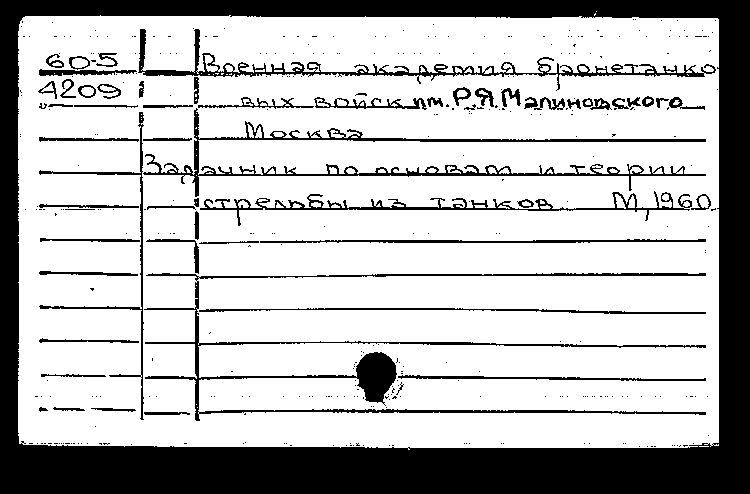 60-5 Военная академия бронетанко-
4209 вых войск им. Р.Я. Малиновского
Москва
Задачник по основам и теории
стрельбы из танков М, 1960